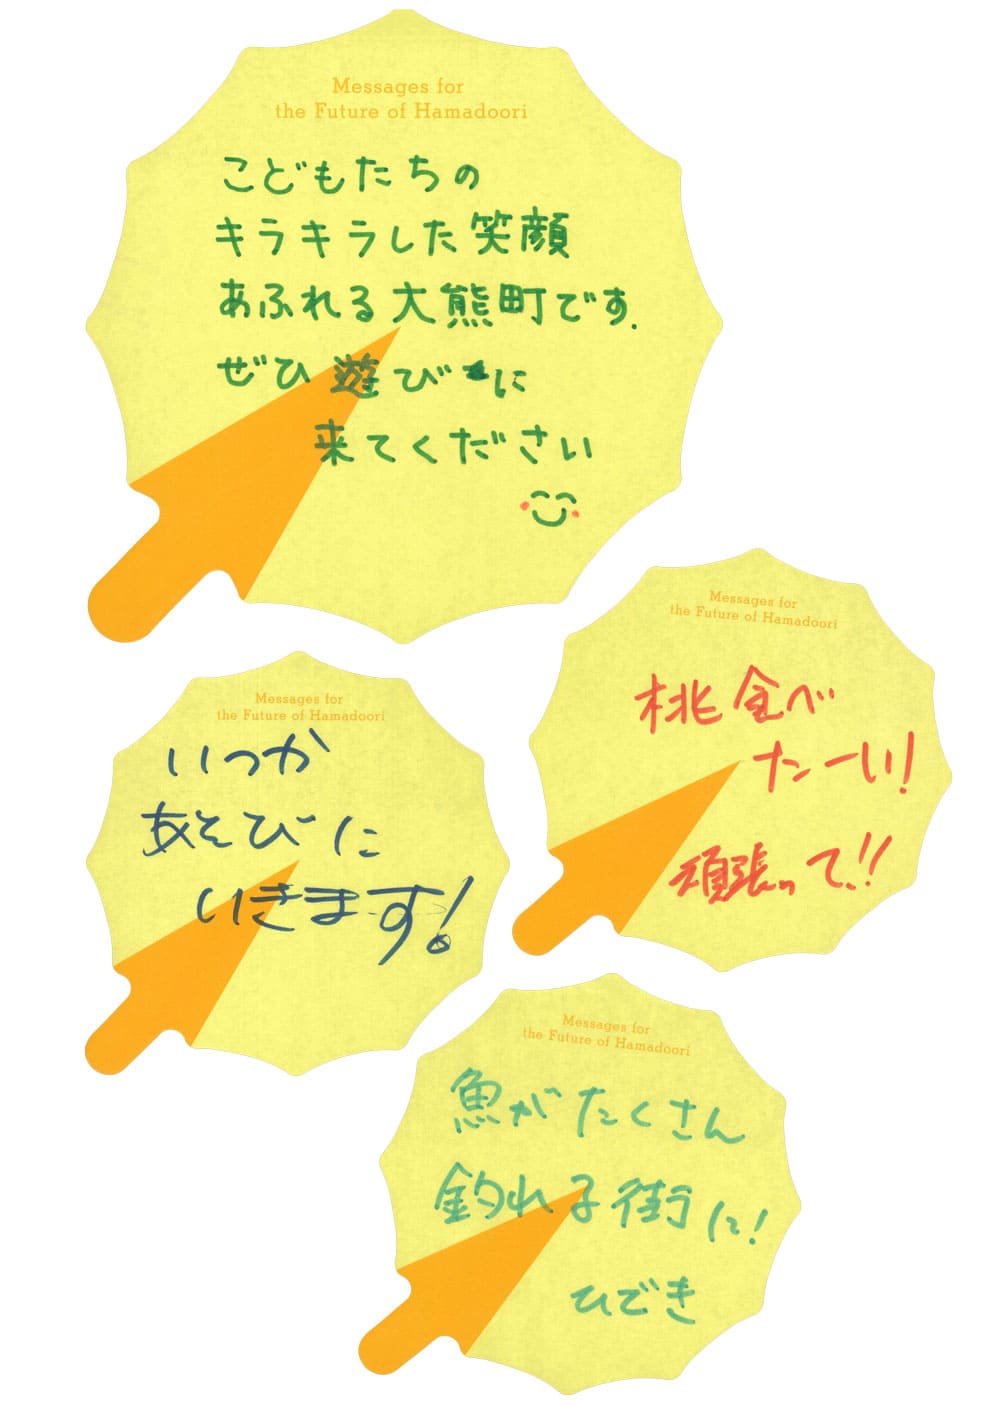 Messages for
the Future of Hamadoori
こどもたちの
キラキラした笑顔
あふれる大熊町です.
ぜひ遊びに
来てください
Messages for
the Future of Hamadoori
桃食べ
たーい!
頑張って!!
Messages for
the Future of Hamadoori
いつか
あそびに
いきます!
Messages for
the Future of Hamadoori
魚がたくさん
釣れる街に!
ひでき